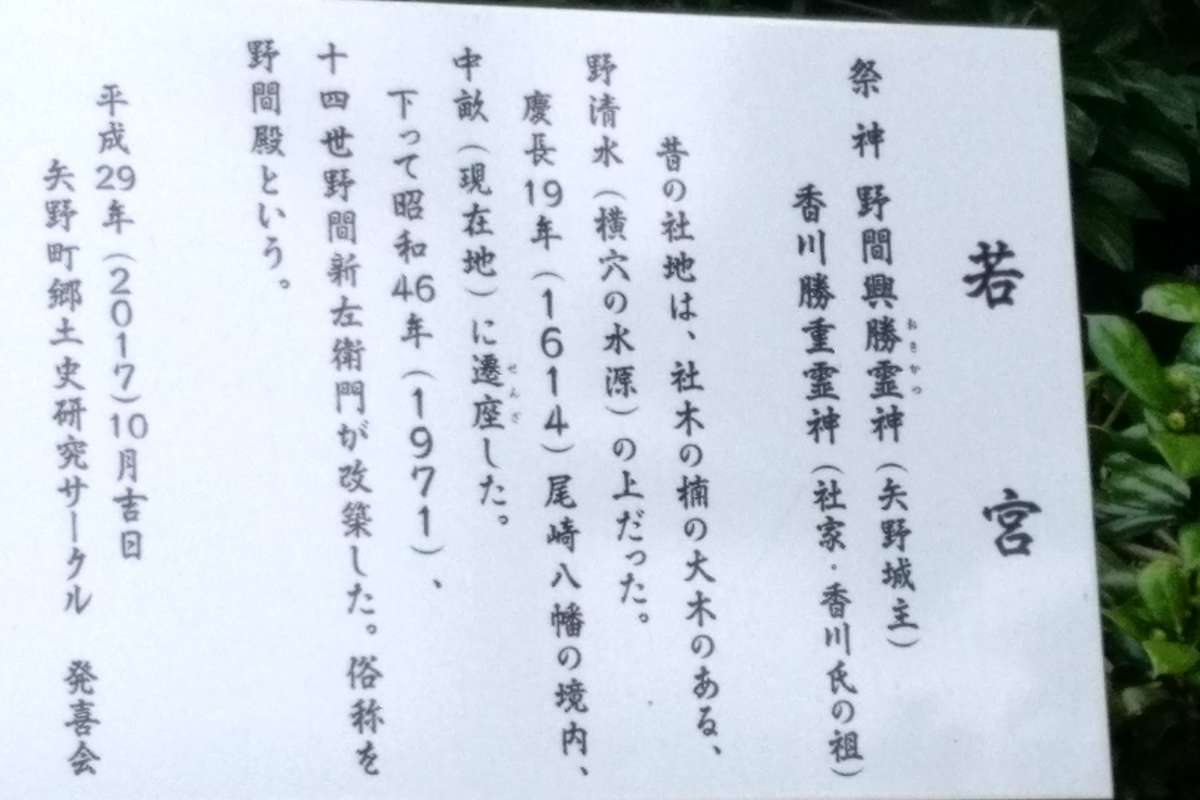 若宮
祭神 野間興勝霊神（矢野城主）
おきかつ
香川勝重霊神（社家・香川氏の祖）
昔の社地は、社木の楠の大木のある、
野清水（横穴の水源）の上だった。
慶長19年（1614）尾崎八幡の境内、
中畝（現在地）に遷座した。
せんざ
下って昭和46年（1971）、
十四世野間新左衛門が改築した。俗称を
野間殿という。
平成29年（2017）10月吉日
矢野町郷土史研究サークル 発喜会